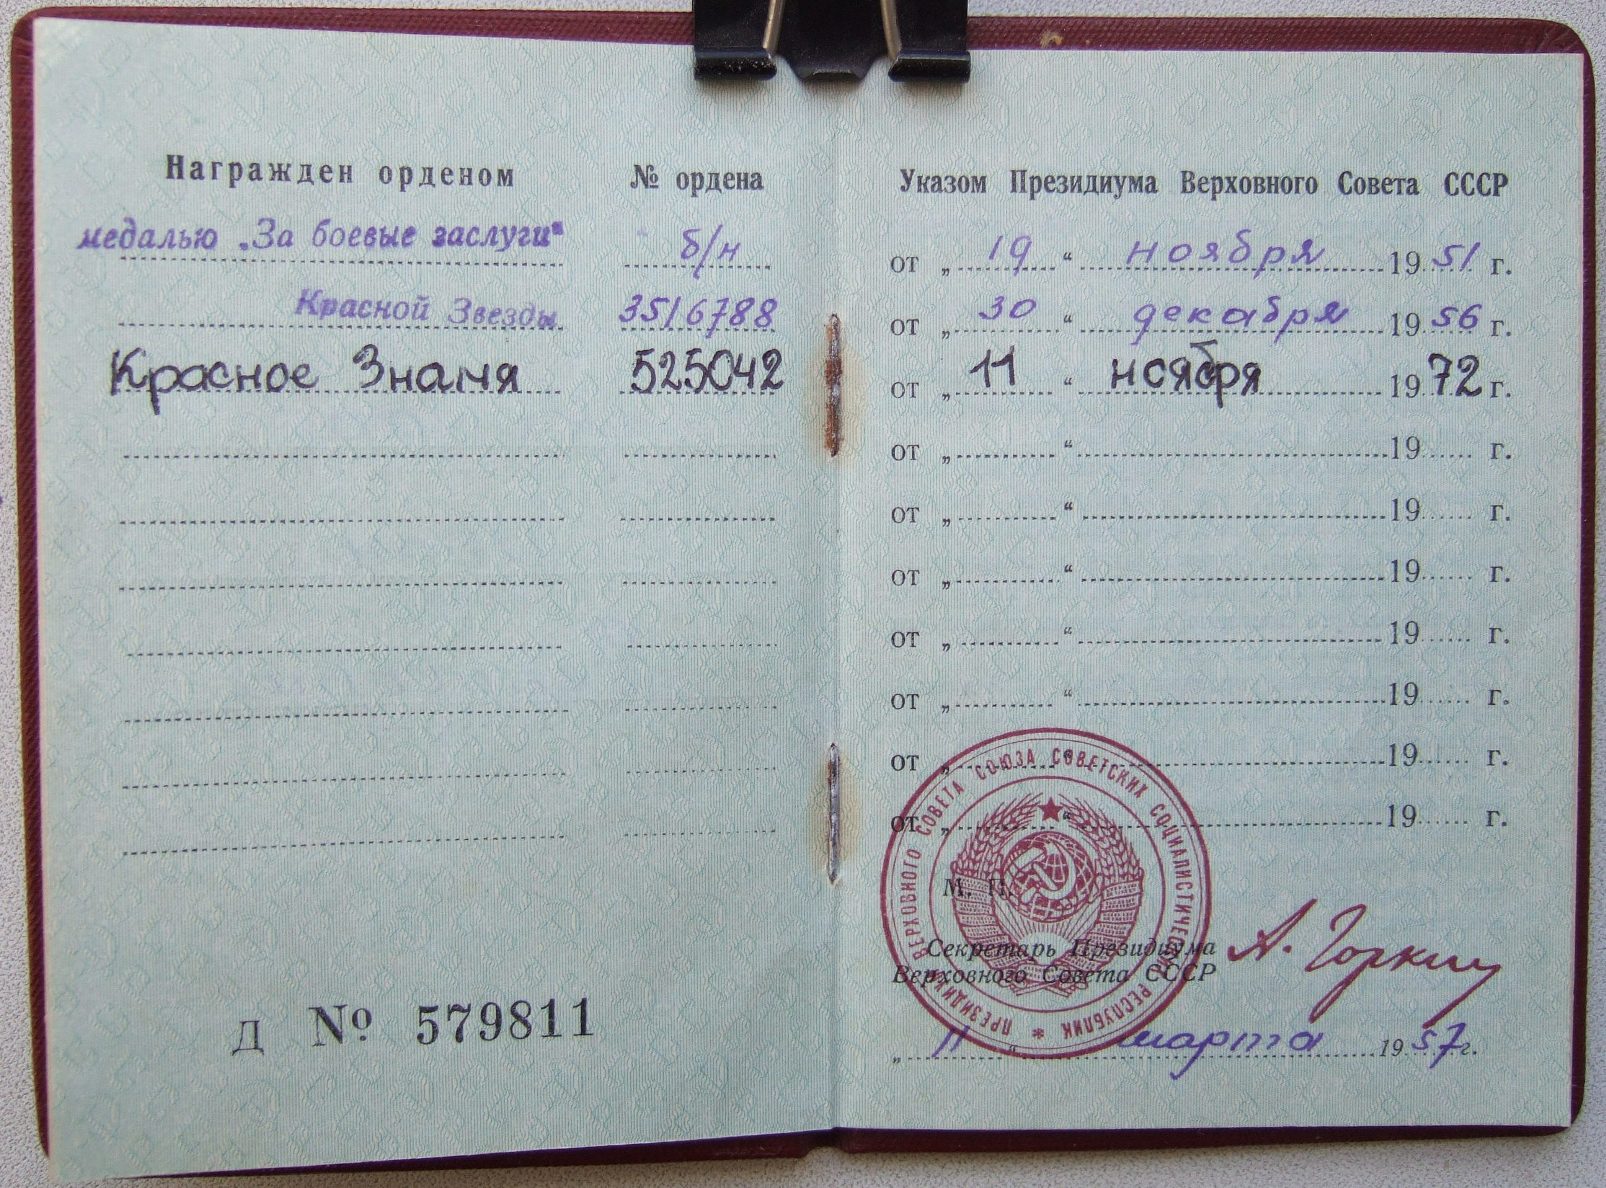 Награжден орденом № ордена
медалью „За боевые заслуги" б/н
Красной Звезды 3516788
Красное Знамя 525042
Д № 579811
Указом Президиума Верховного Совета СССР
от „ 19 “ ноября 1951 г.
от „ 30 “ декабря 1956 г.
от „ 11 “ ноября 1972 г.
от „ “ 19 г.
от „ “ 19 г.
от „ “ 19 г.
от „ “ 19 г.
от „ “ 19 г.
от „ “ 19 г.
от „ “ 19 г.
М. П.
ПРЕЗИДИУМ ВЕРХОВНОГО СОВЕТА СОЮЗА СОВЕТСКИХ СОЦИАЛИСТИЧЕСКИХ РЕСПУБЛИК *
Секретарь Президиума
Верховного Совета СССР А. Горкин
„ 11 “ марта 1957 г.